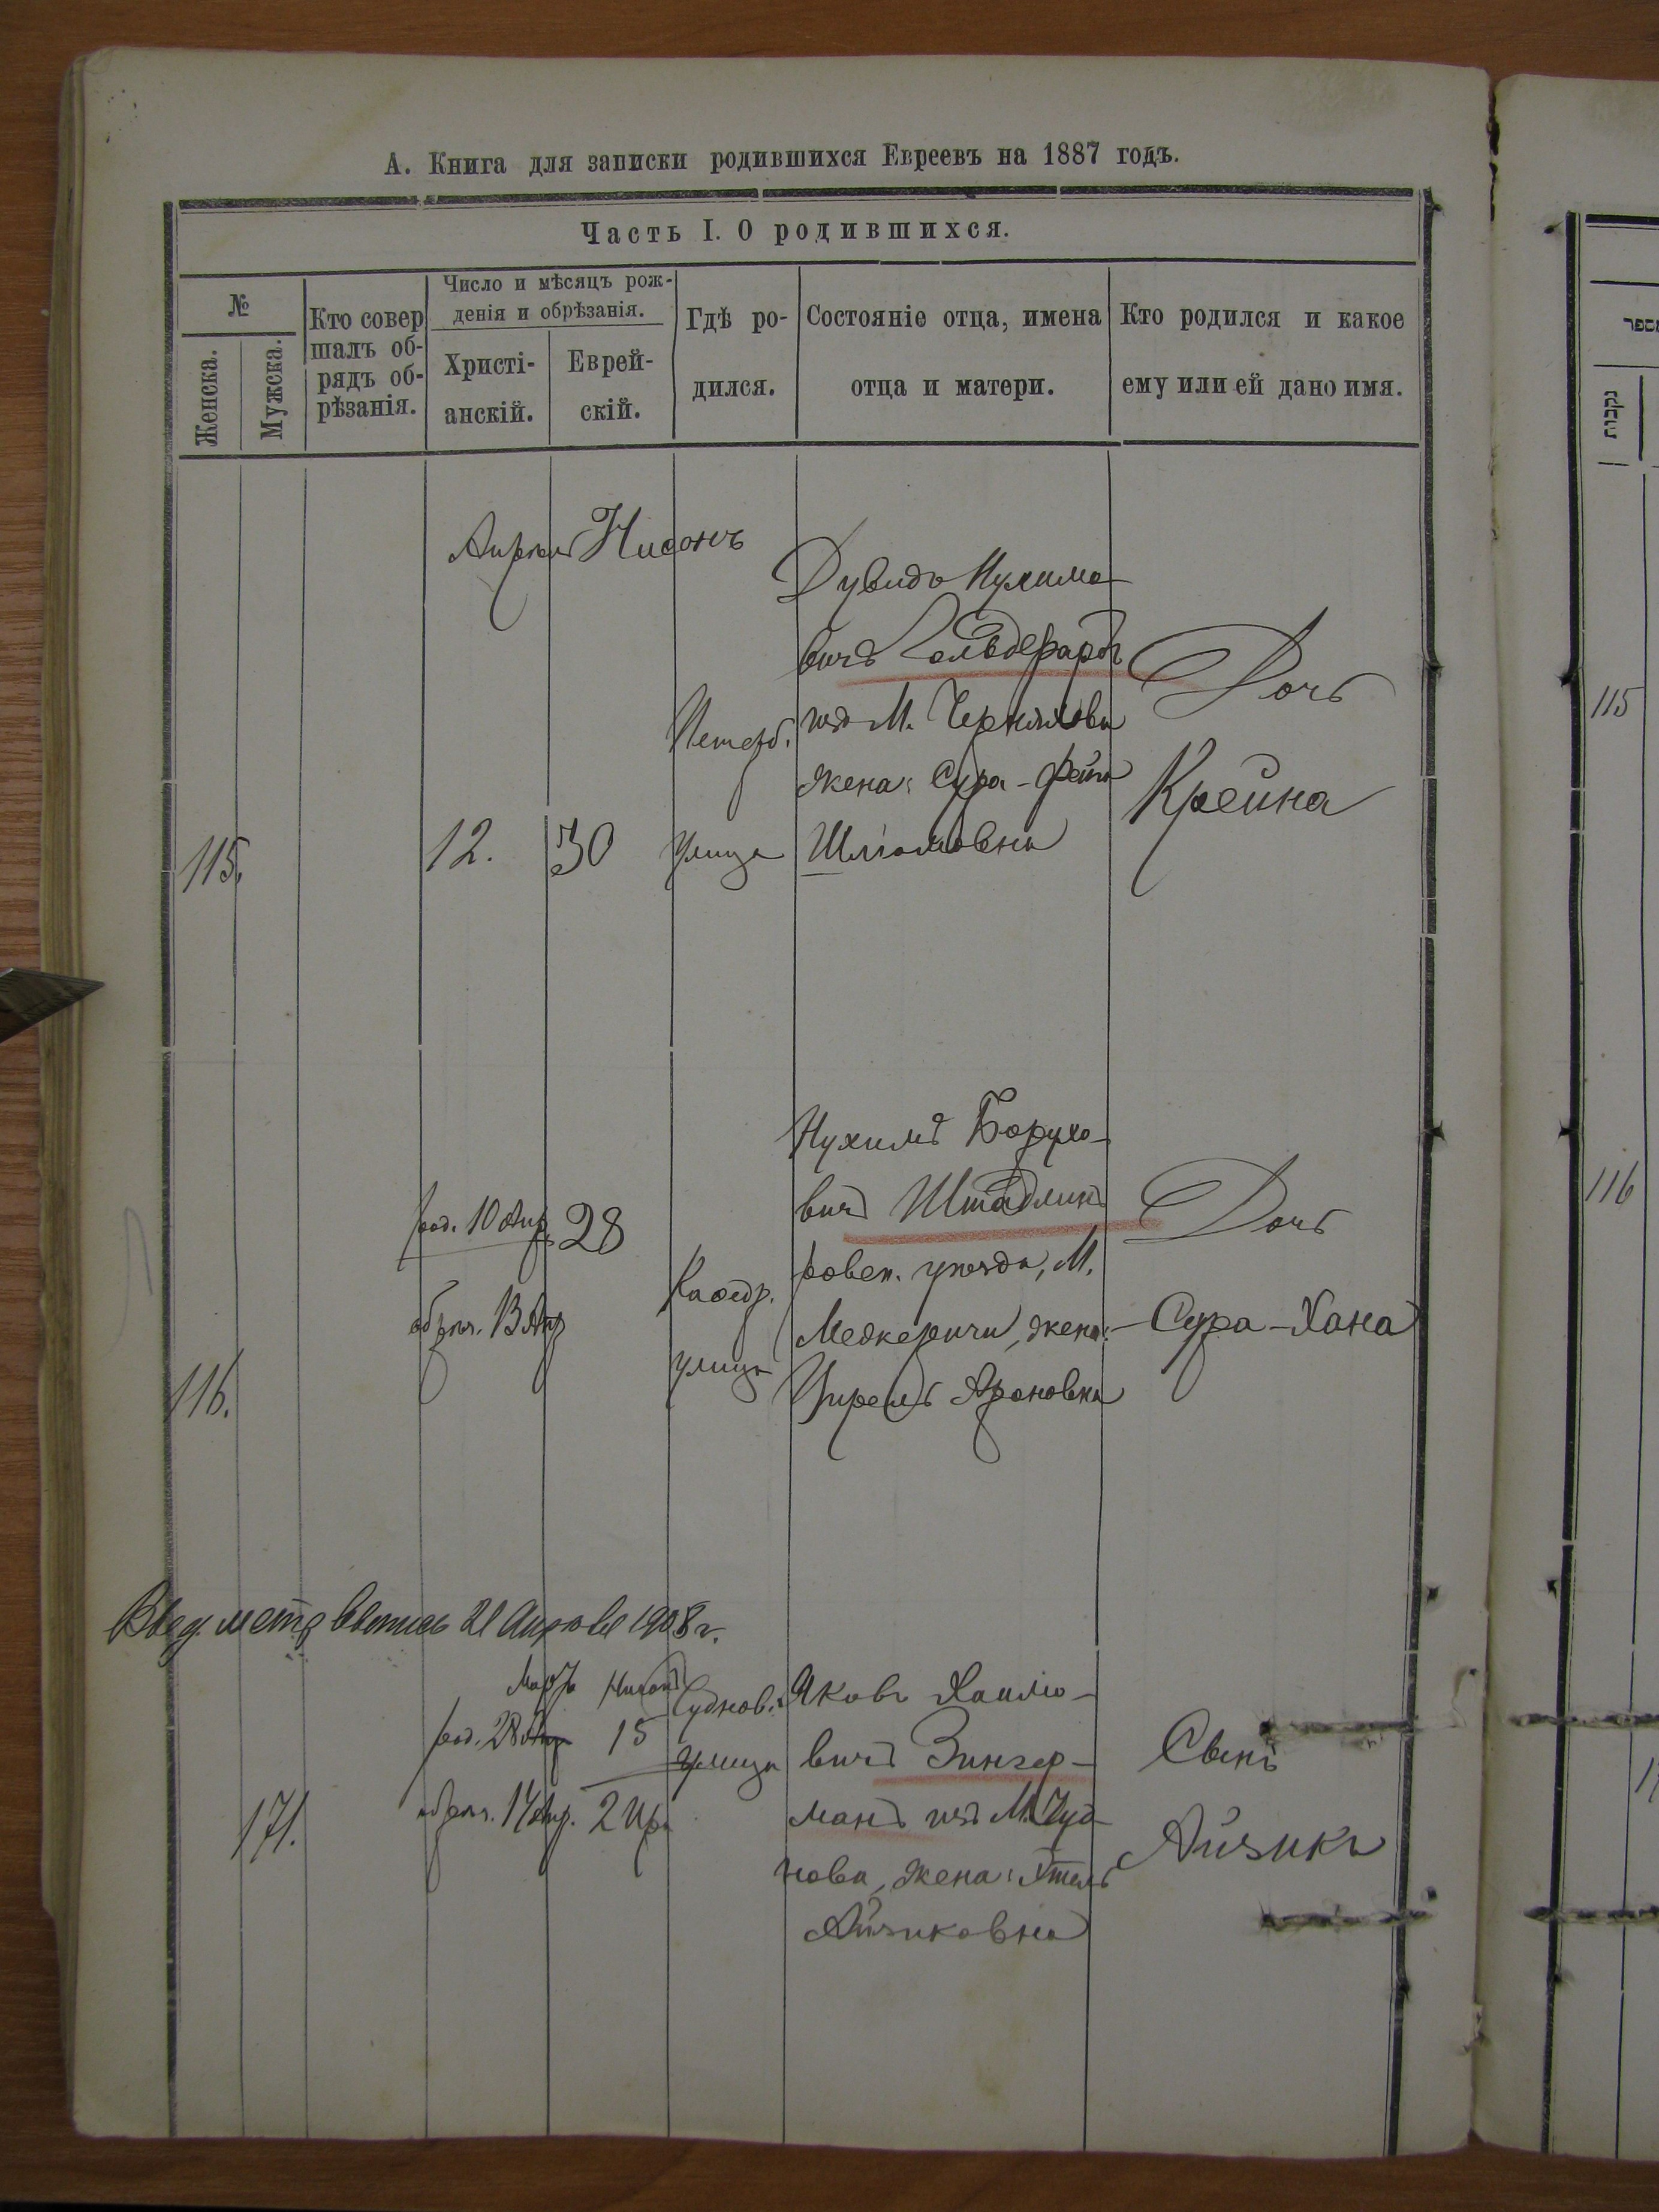 А. Книга для записки родившихся Евреевъ на 1887 годъ.
Часть I. О родившихся.
№
Женска.
Мужска.
Кто совер
шалъ об-
рядъ об-
рѣзанія.
Число и мѣсяцъ рож-
денія и обрѣзанія.
Христі-
анскій.
Еврей-
скій.
Гдѣ ро-
дился.
Состояніе отца, имена
отца и матери.
Кто родился и какое
ему или ей дано имя.
Апрѣль Нисонъ
115.
12.
30
Петерб.
улица
Дувидъ Нухимо-
вичъ Гольдфарбъ
изъ М. Черняхова
жена: Сура-Фейга
Шліомовна
Дочь
Крейна
116.
род. 10 Апр.
28
обрѣз. 13 Апр
Каѳедр.
улица
Нухимъ Борухо-
вичъ Штадликъ
ровен. уѣзда, М.
Межеричи, жена:
Цирель Ароновна
Дочь
Сура-Хана
21 Апрѣля 1908 г.
171.
Мартъ Нисонъ
род. 28
15
обрѣз. 14 Апр. 2 Ира
Чуднов.
улица
Яковъ Хаимо-
вичъ Зингер-
манъ изъ М. Чуд-
нова, жена: Этель
Айзиковна
Сынъ
Айзикъ
מספר
נקבות
115
116